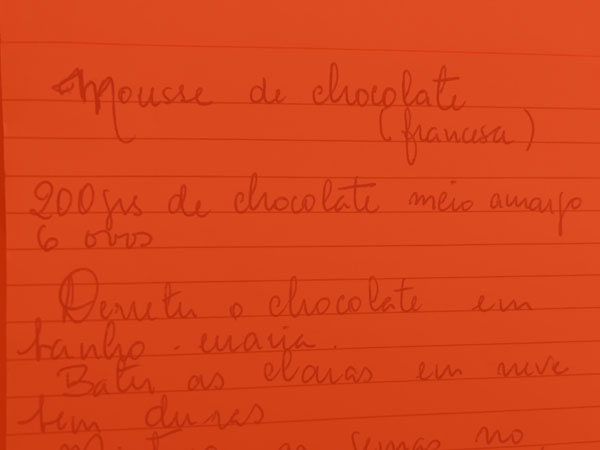 Mousse de chocolate
(francesa)
200grs de chocolate meio amargo
6 ovos
Derreter o chocolate em
banho-maria.
Bater as claras em neve
bem duras
gemas no